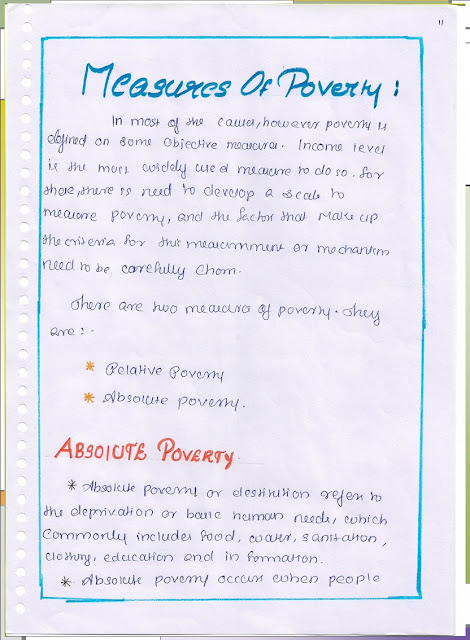 11
Measures Of Poverty :
In most of the cases, however poverty is
defined on some objective measures. Income level
is the most widely used measure to do so. For
these, there is need to develop a scale to
measure poverty, and the factor that make up
the criteria for this measurnment or mechanism
need to be carefully chosn.
There are two measures of poverty. They
are :-
* Relative Poverty
* Absolute poverty.
ABSOlUTE POVERTY.
* Absolute poverty or destitution refers to
the deprivation or basic human needs, which
Commonly includes food, water, sanitation,
clothing, education and information.
* Absolute poverty occurs when people